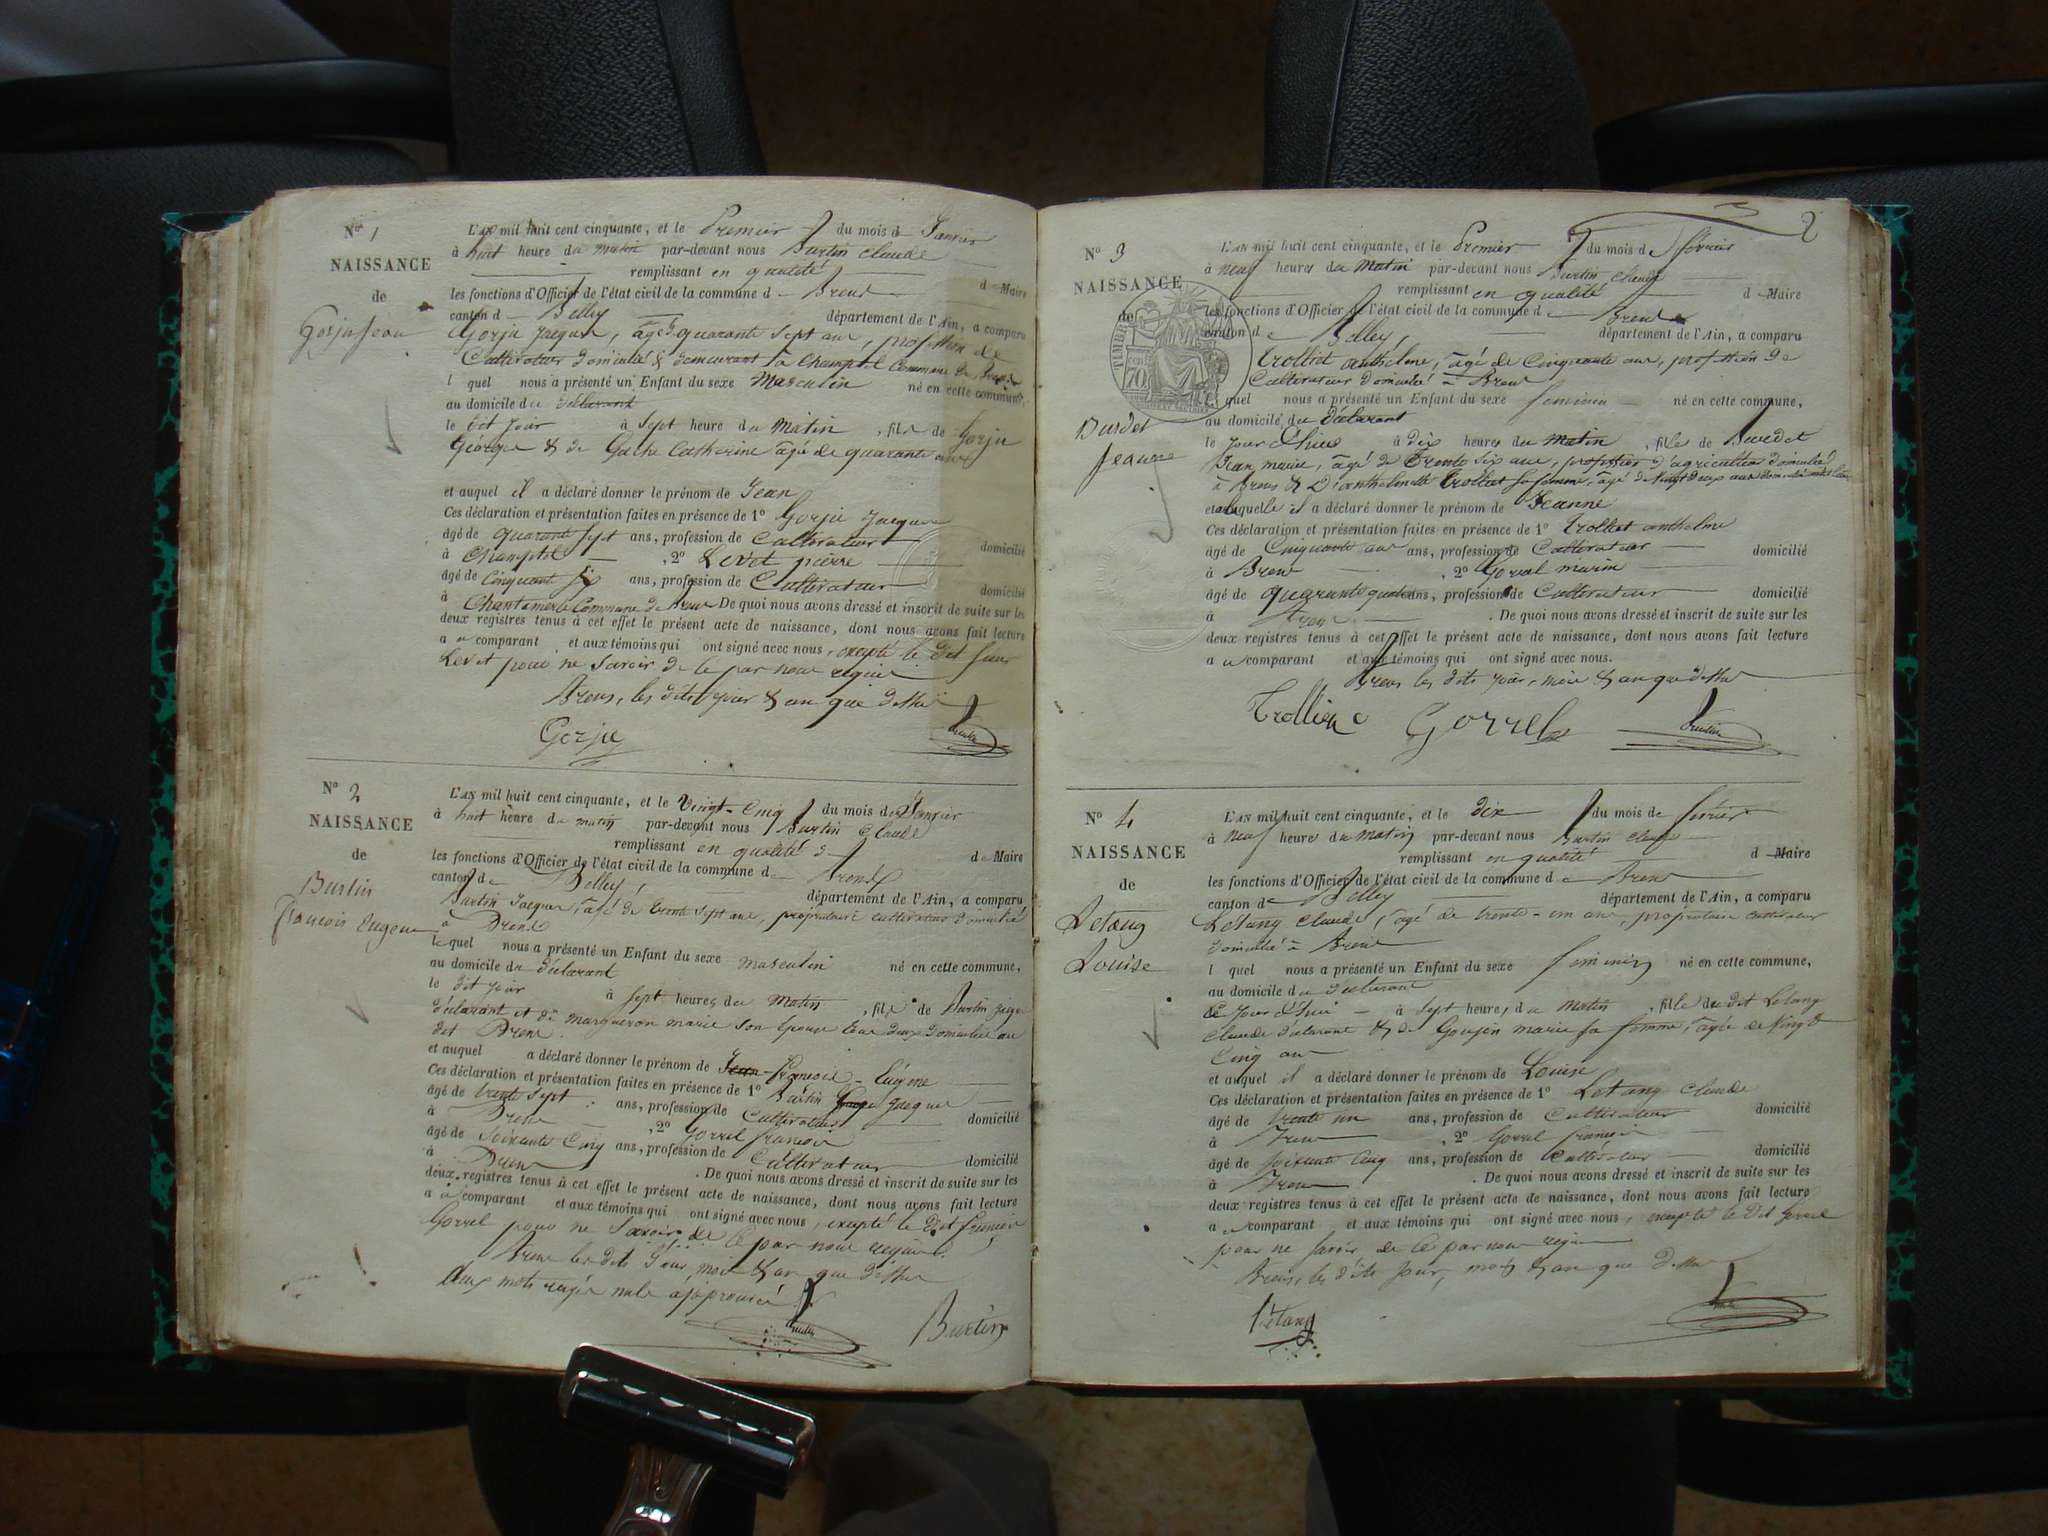 N° 1
NAISSANCE
de
Gorju Jean
L'AN mil huit cent cinquante, et le Premier du mois de Janvier
à huit heure du matin par-devant nous Burtin Claude
remplissant en qualité d e Maire
les fonctions d'Officier de l'état civil de la commune d Brens
canton d Belley département de l'Ain, a comparu
Gorju Jacques, âgé quarante sept ans, profession de
Cultivateur domicilié & demeurant à Champtel Commune de Brens
l quel nous a présenté un Enfant du sexe Masculin né en cette commune,
au domicile du déclarant
le dit jour à sept heure du Matin , fils de Gorju
George & de Gache Catherine âgé de quarante ans
et auquel il a déclaré donner le prénom de Jean
Ces déclaration et présentation faites en présence de 1° Gorju Jacques
âgé de quarante sept ans, profession de Cultivateur domicilié
à Champtel , 2° Levet pierre
âgé de Cinquant six ans, profession de Cultivateur domicilié
à Chantemerle Commune de Brens De quoi nous avons dressé et inscrit de suite sur les
deux registres tenus à cet effet le présent acte de naissance, dont nous avons fait lecture
a u comparant et aux témoins qui ont signé avec nous, excepté le dit sieur
Levet pour ne savoir de ce par nous requis
Brens, les dits jour & an que dessus
Gorju
Burtin
N° 2
NAISSANCE
de
Burtin
François Eugene
L'AN mil huit cent cinquante, et le Vingt-Cinq du mois de Janvier
à huit heure du matin par-devant nous Burtin Claude
remplissant en qualité d e Maire
les fonctions d'Officier de l'état civil de la commune d Brens
canton de Belley, département de l'Ain, a comparu
Burtin Jacques, âgé de trente sept ans, propriétaire cultivateur domicilié
à Brens
lequel nous a présenté un Enfant du sexe masculin né en cette commune,
au domicile du déclarant
le dit jour à sept heures du Matin , fils de Burtin
déclarant et de Margueron marie son épouse tous deux domiciliés au
dit Brens.
et auquel a déclaré donner le prénom de Jean François Eugéne
Ces déclaration et présentation faites en présence de 1° Burtin Jacques
âgé de trente sept ans, profession de Cultivateur domicilié
à Brens , 2° Gorrel francois
âgé de Soixante Cinq ans, profession de Cultivateur domicilié
à Brens . De quoi nous avons dressé et inscrit de suite sur les
deux registres tenus à cet effet le présent acte de naissance, dont nous avons fait lecture
a u comparant et aux témoins qui ont signé avec nous, excepté le dit
Gorrel pour ne savoir de ce par nous requis.
Brens les dits jour, mois & an que dessus
deux mots rayés nuls approuvé
Burtin
Burtin
2
N° 3
NAISSANCE
de
TIMBRE
70
Burdet
Jeanne
L'AN mil huit cent cinquante, et le Premier du mois de février
à neuf heures du Matin par-devant nous Burtin Claude
remplissant en qualité d e Maire
les fonctions d'Officier de l'état civil de la commune d e Brens
canton de Belley, département de l'Ain, a comparu
Trolliet anthelme, âgé de Cinquante ans, profession de
Cultivateur domicilié à Brens
l quel nous a présenté un Enfant du sexe feminin né en cette commune,
au domicile du Déclarant
le jour d'hier à dix heures du matin , fille de Burdet
Jean marie, âgé de trente six ans, profession d'agriculteur domicilié
à Brens & D'anthelmette Trolliet sa femme, âgé de Vingt deux ans
et auquelle il a déclaré donner le prénom de Jeanne
Ces déclaration et présentation faites en présence de 1° Trolliet anthelme
âgé de Cinquante ans ans, profession de Cultivateur domicilié
à Brens , 2° Gorrel marin
âgé de quarante quatre ans, profession de Cultivateur domicilié
à Brens . De quoi nous avons dressé et inscrit de suite sur les
deux registres tenus à cet effet le présent acte de naissance, dont nous avons fait lecture
a u comparant et aux témoins qui ont signé avec nous.
Brens les dits jour, mois & an que dessus
Gorrel
Burtin
N° 4
NAISSANCE
de
Letang
Louise
L'AN mil huit cent cinquante, et le dix du mois de février
à neuf heures du matin par-devant nous Burtin Claude
remplissant en qualité d e Maire
les fonctions d'Officier de l'état civil de la commune d e Brens
canton de Belley département de l'Ain, a comparu
Létang Claude, âgé de trente-un ans, propriétaire cultivateur
domicilié à Brens
l quel nous a présenté un Enfant du sexe feminin né en cette commune,
au domicile du déclarant
Ce jour d'hui à sept heures du Matin , fille du dit Letang
Claude déclarant & de Goujon marie sa femme, âgée de Vingt
Cinq ans
et auquel il a déclaré donner le prénom de Louise
Ces déclaration et présentation faites en présence de 1° Letang Claude
âgé de trente un ans, profession de Cultivateur domicilié
à Brens , 2° Gorrel francois
âgé de soixante cinq ans, profession de Cultivateur domicilié
à Brens . De quoi nous avons dressé et inscrit de suite sur les
deux registres tenus à cet effet le présent acte de naissance, dont nous avons fait lecture
a u comparant et aux témoins qui ont signé avec nous, excepté le dit Gorrel
pour ne savoir de ce par nous requis
Brens, les dits jour, mois & an que dessus
Létang